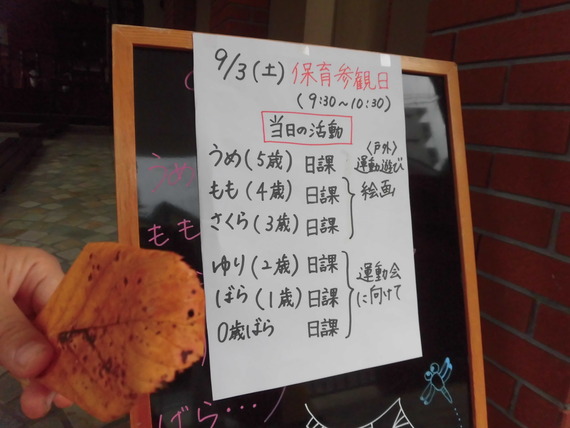 9/3(土) 保育参観日
(9:30~10:30)
当日の活動
うめ(5歳) 日課 〈戸外〉運動遊び
もも(4歳) 日課
絵画
さくら(3歳) 日課
ゆり(2歳) 日課
ばら(1歳) 日課
運動会に向けて
0歳ばら 日課
うめ
もも
ばら…